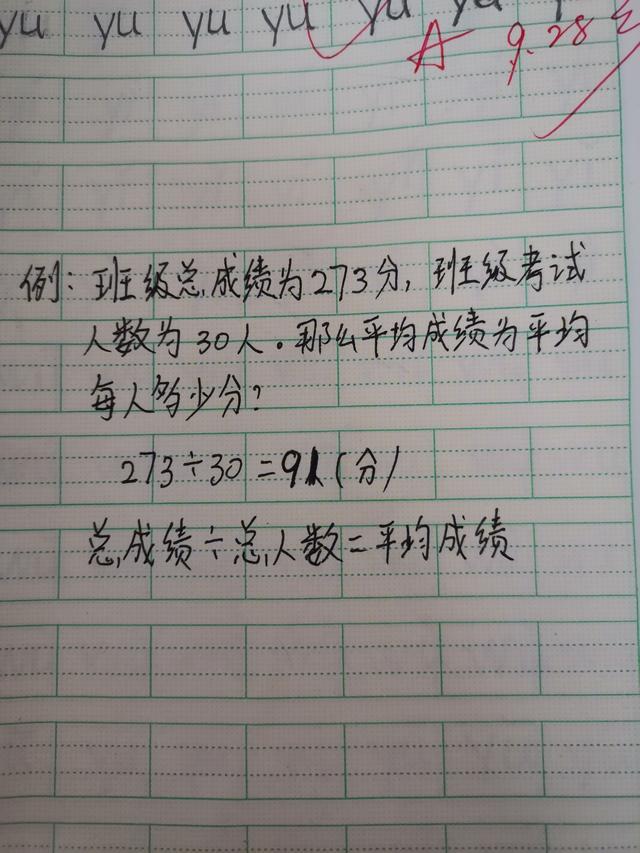 yu yu yu yu yu yu
A 9.28
例：班级总成绩为273分，班级考试
人数为30人。那么平均成绩为平均
每人多少分？
273÷30=91(分)
总成绩÷总人数=平均成绩